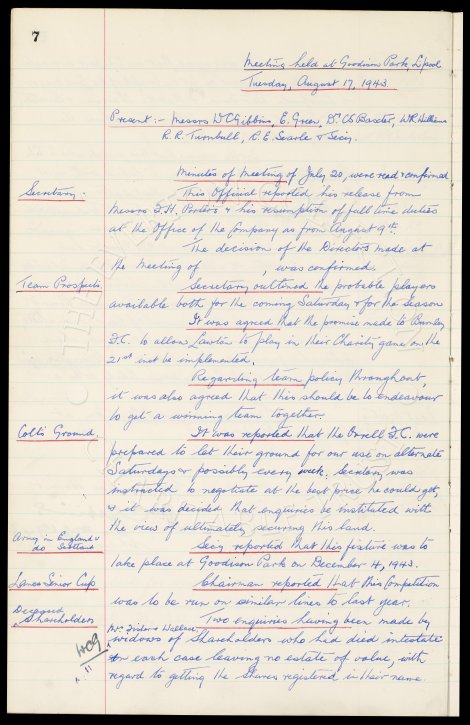 7
Meeting held at Goodison Park, L'pool
Tuesday, August 17, 1943.
Present :- Messrs W.C. Gibbins, E. Green, Dr. C.S. Baxter, W.R. Williams
R.R. Turnbull, R.E. Searle & Secy.
Minutes of Meeting of July 20, were read & confirmed
Secretary :-
This Official reported his release from
Messrs & his resumption of full time duties
at the Office of the Company as from August 9th.
The decision of the Directors made at
the meeting of , was confirmed.
Team Prospects.
Secretary outlined the probable players
available both for the coming Saturday & for the season
It was agreed that the promise made to Burnley
F.C. to allow Lawton to play in their Charity game on the
21st inst be implemented.
Regarding team policy throughout,
it was also agreed that this should be to endeavour
to get a winning team together.
Colts Ground.
It was reported that the Orrell F.C. were
prepared to let their ground for our use on alternate
Saturdays or possibly every week. Secretary was
instructed to negotiate at the best price he could get,
& it was decided that enquiries be instituted with
the view of ultimately securing this land.
Army in England v
do Scotland
Secy reported that this fixture was to
take place at Goodison Park on December 4, 1943.
Lancs Senior Cup
Chairman reported that this Competition
was to be run on similar lines to last year.
Deceased
Shareholders
Two enquiries having been made by
widows of Shareholders who had died intestate
in each case leaving no estate of value, with
regard to getting the shares registered in their name.